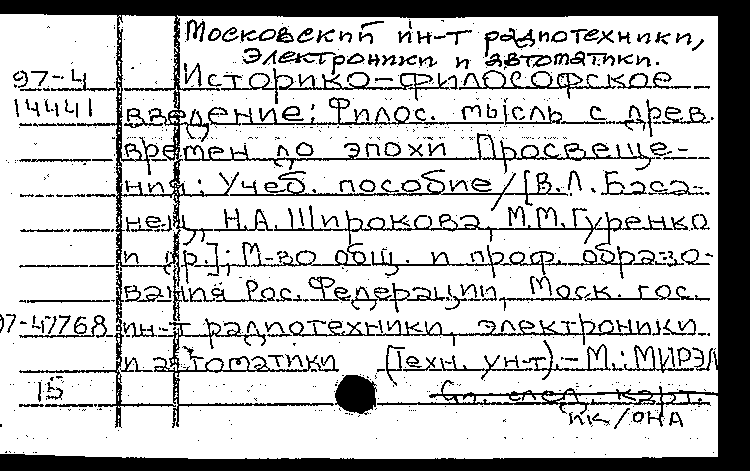 Московский ин-т радиотехники,
электроники и автоматики.
97-4 Историко-философское
14441 введение: Филос. мысль с древ.
времен до эпохи Просвеще-
ния: Учеб. пособие / [В.Л. Баса-
нец, Н.А. Широкова, М.М. Гуренко
и др.]; М-во общ. и проф. образо-
вания Рос. Федерации, Моск. гос.
97-47768 ин-т радиотехники, электроники
и автоматики (Техн. ун-т).- М.: МИРЭА
15 См. след. карт.
КК/ОНА